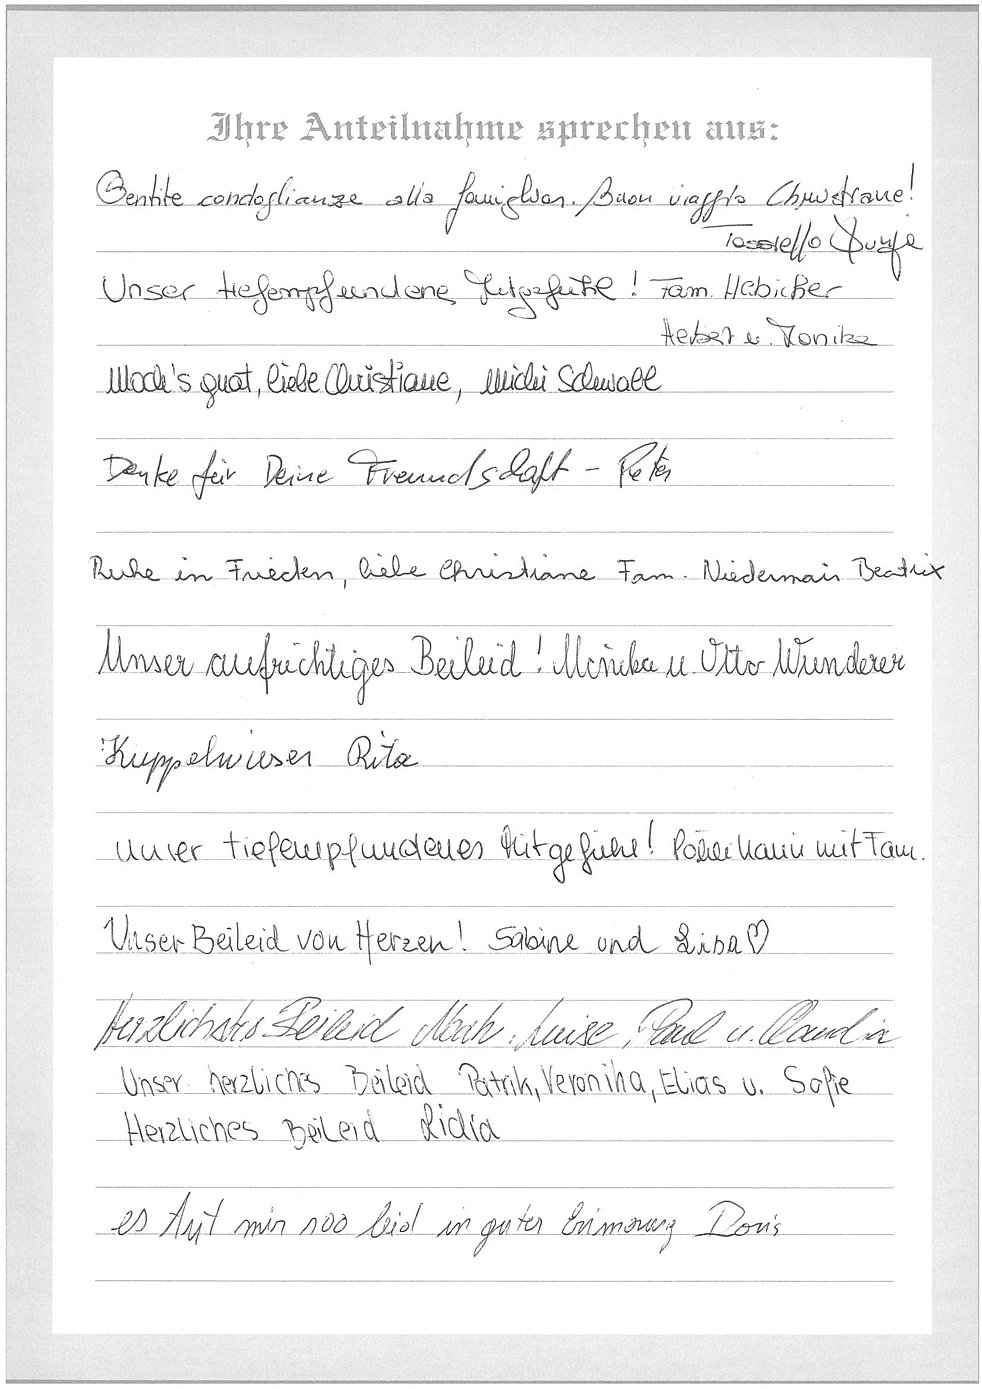 Ihre Anteilnahme sprechen aus:
Sentite condoglianze alla famiglia. Buon viaggio Christiane!
Unser tiefempfundenes Mitgefühl! Fam. Habicher
Herbert u. Monika
Mach's guat, liebe Christiane, Michi Schwalt
Danke für Deine Freundschaft - Peter
Ruhe in Frieden, liebe Christiane Fam. Niedermair Beatrix
Unser aufrichtiges Beileid! Monika u. Otto Wunderer
Kuppelwieser Rita
Unser tiefempfundenes Mitgefühl! Karin mit Fam.
Unser Beileid von Herzen! Sabine und Lisa ♡
Herzlichstes Beileid Luise, Paul u. Claudia
Unser herzliches Beileid Patrik, Veronika, Elias u. Sofie
Herzliches Beileid Lidia
es tut mir soo leid in guter Erinnerung Doris